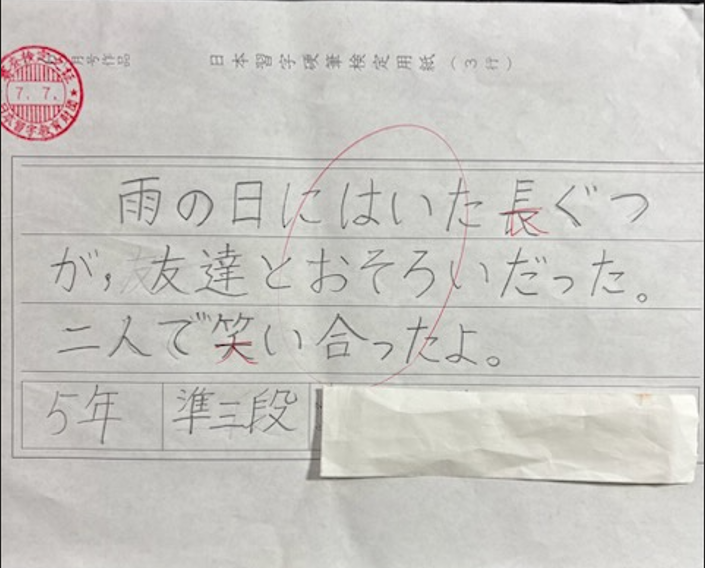 月号作品 日本習字硬筆検定用紙(3行)
7.7.
日本習字教育財団
雨の日にはいた長ぐつ
が,友達とおそろいだった。
二人で笑い合ったよ。
5年 準三段